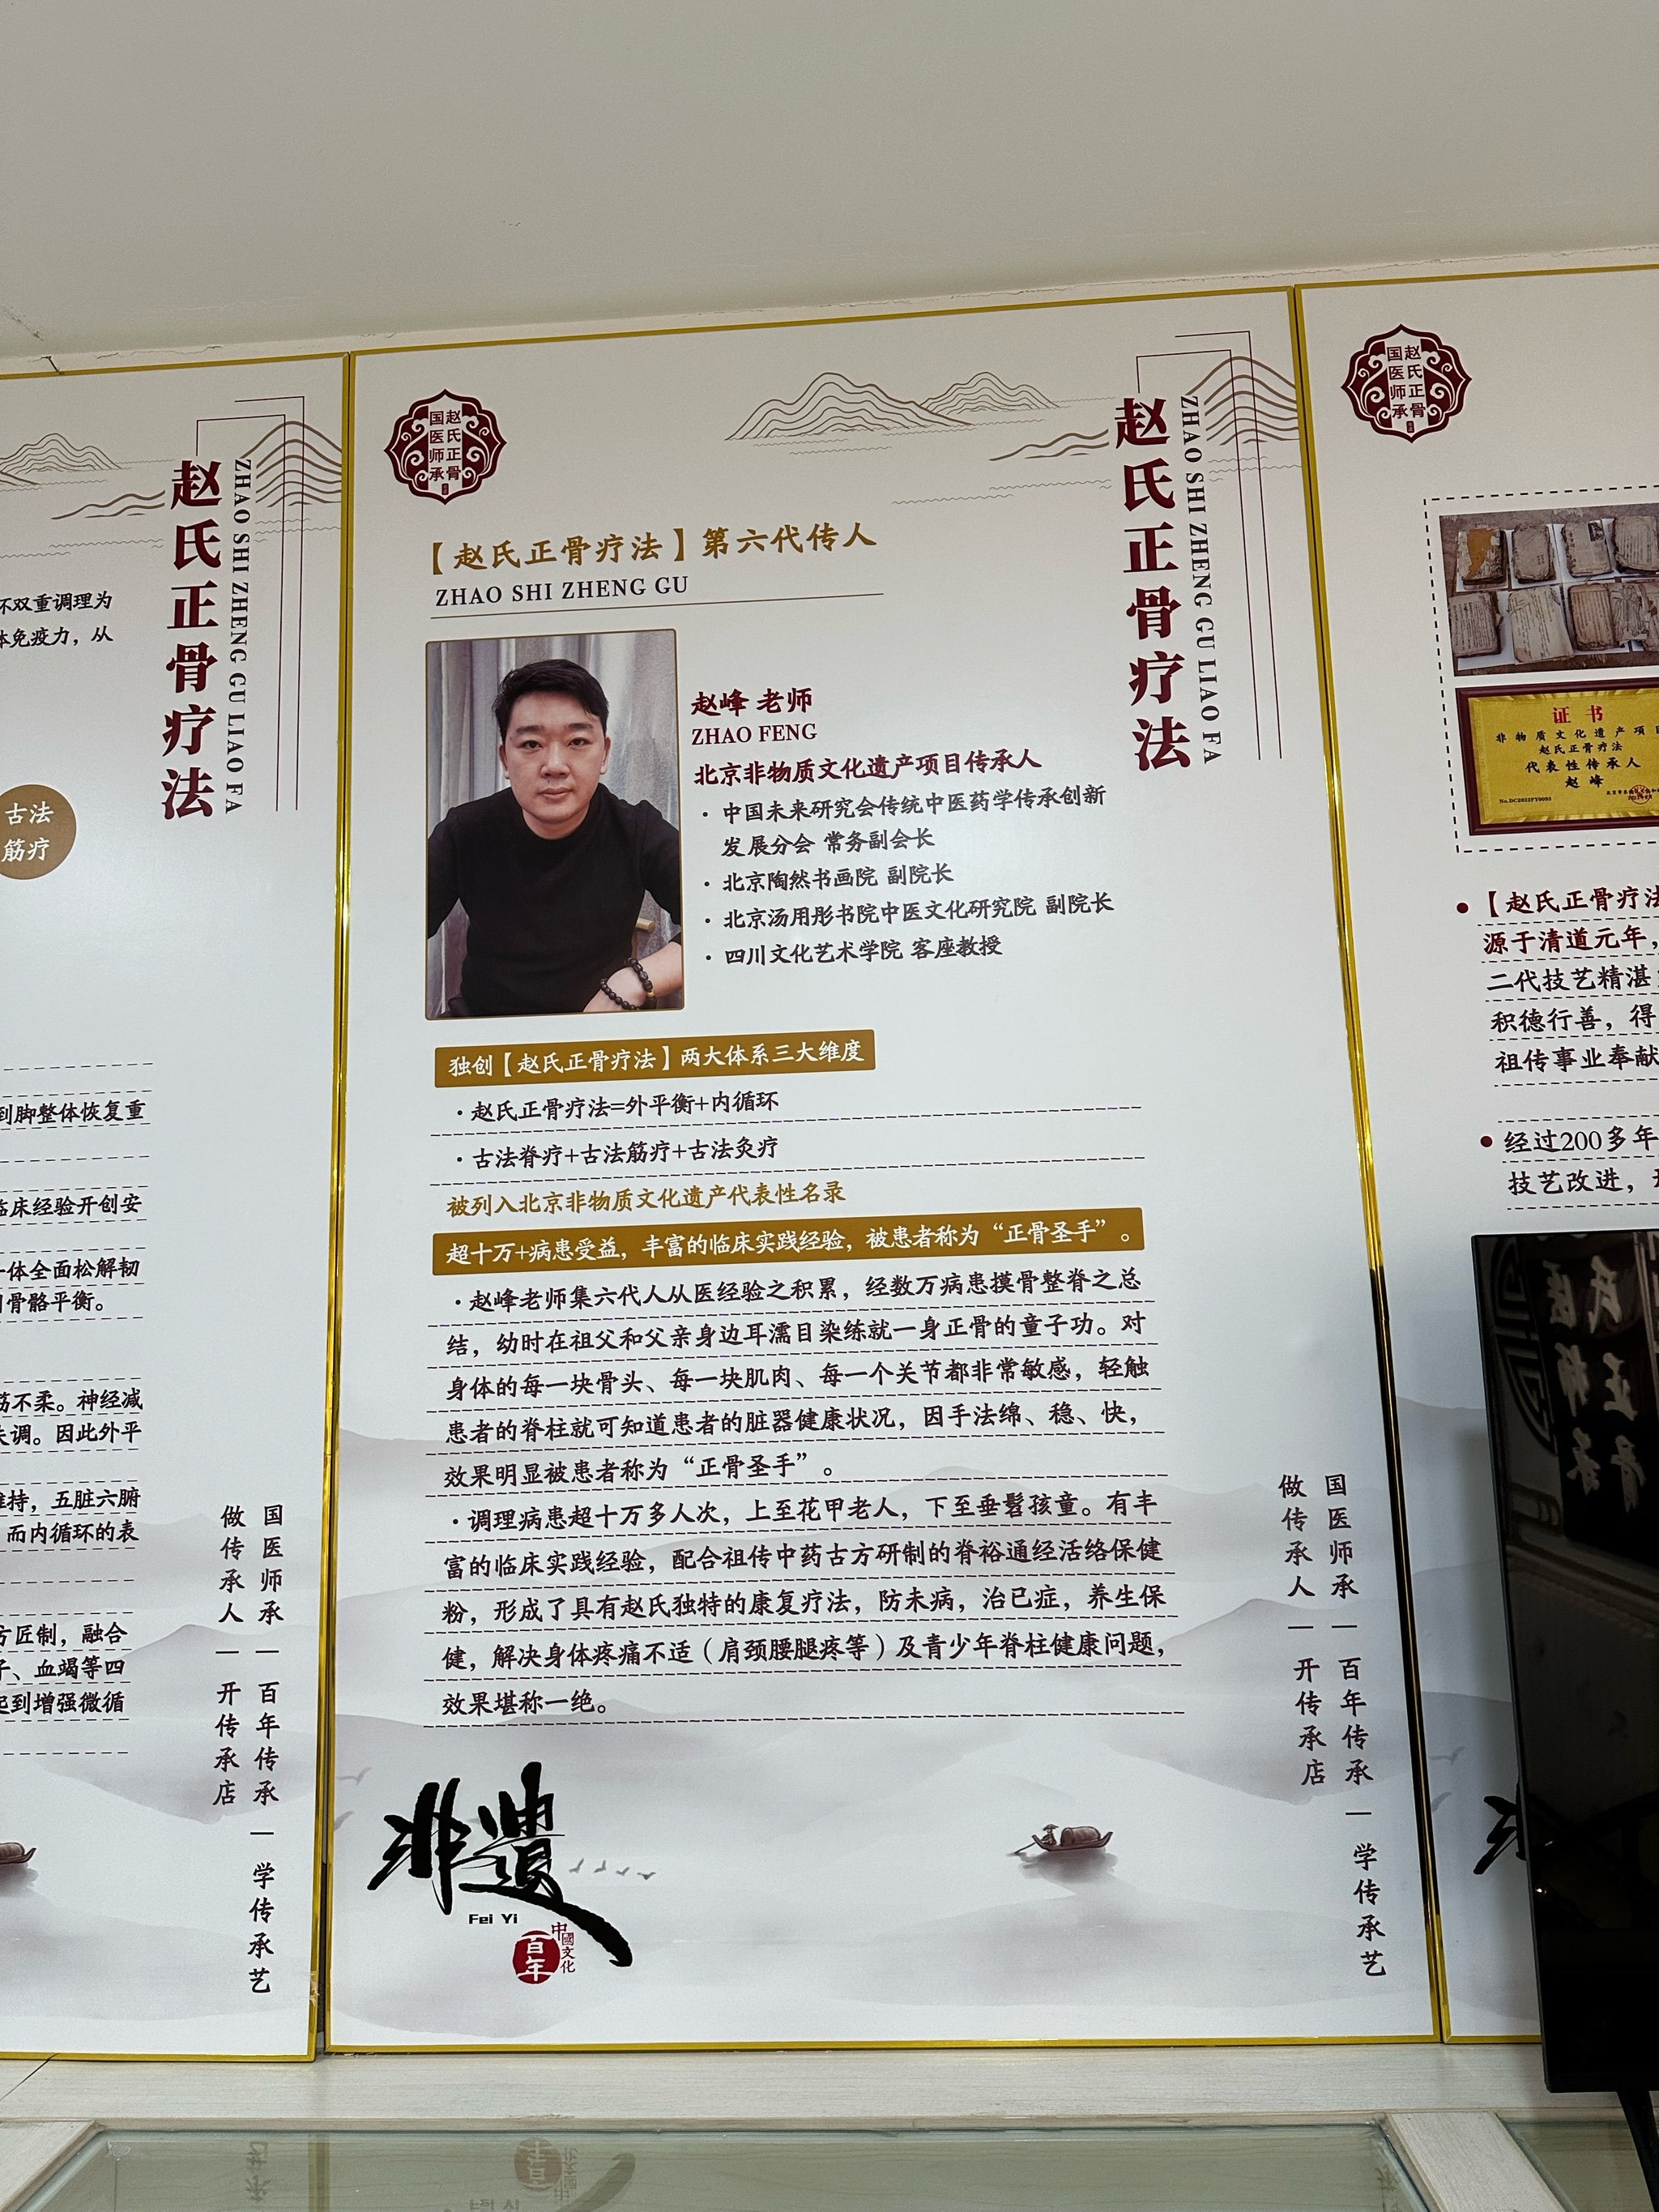 不双重调理为
体免疫力，从
赵氏正骨疗法
ZHAO SHI ZHENG GU LIAO FA
古法
筋疗
到脚整体恢复重
临床经验开创安
一体全面松解韧
骨骼平衡。
筋不柔。神经减
失调。因此外平
维持，五脏六腑
而内循环的表
方匠制，融合
子、血竭等四
起到增强微循
国医师承—百年传承—学传承艺
做传承人—开传承店
赵氏正骨
国医师承
赵氏正骨疗法
ZHAO SHI ZHENG GU LIAO FA
【赵氏正骨疗法】第六代传人
ZHAO SHI ZHENG GU
赵峰 老师
ZHAO FENG
北京非物质文化遗产项目传承人
· 中国未来研究会传统中医药学传承创新
发展分会 常务副会长
· 北京陶然书画院 副院长
· 北京汤用彤书院中医文化研究院 副院长
· 四川文化艺术学院 客座教授
独创【赵氏正骨疗法】两大体系三大维度
· 赵氏正骨疗法=外平衡+内循环
· 古法脊疗+古法筋疗+古法灸疗
被列入北京非物质文化遗产代表性名录
超十万+病患受益，丰富的临床实践经验，被患者称为“正骨圣手”。
· 赵峰老师集六代人从医经验之积累，经数万病患摸骨整脊之总
结，幼时在祖父和父亲身边耳濡目染练就一身正骨的童子功。对
身体的每一块骨头、每一块肌肉、每一个关节都非常敏感，轻触
患者的脊柱就可知道患者的脏器健康状况，因手法绵、稳、快，
效果明显被患者称为“正骨圣手”。
· 调理病患超十万多人次，上至花甲老人，下至垂髫孩童。有丰
富的临床实践经验，配合祖传中药古方研制的脊裕通经活络保健
粉，形成了具有赵氏独特的康复疗法，防未病，治已症，养生保
健，解决身体疼痛不适（肩颈腰腿疼等）及青少年脊柱健康问题，
效果堪称一绝。
国医师承—百年传承—学传承艺
做传承人—开传承店
非遗
Fei Yi
百年
中國文化
赵氏正骨
国医师承
证书
非物质文化遗产项目
赵氏正骨疗法
代表性传承人
赵峰
● 【赵氏正骨疗法
源于清道元年，
二代技艺精湛
积德行善，得
祖传事业奉献
● 经过200多年
技艺改进，